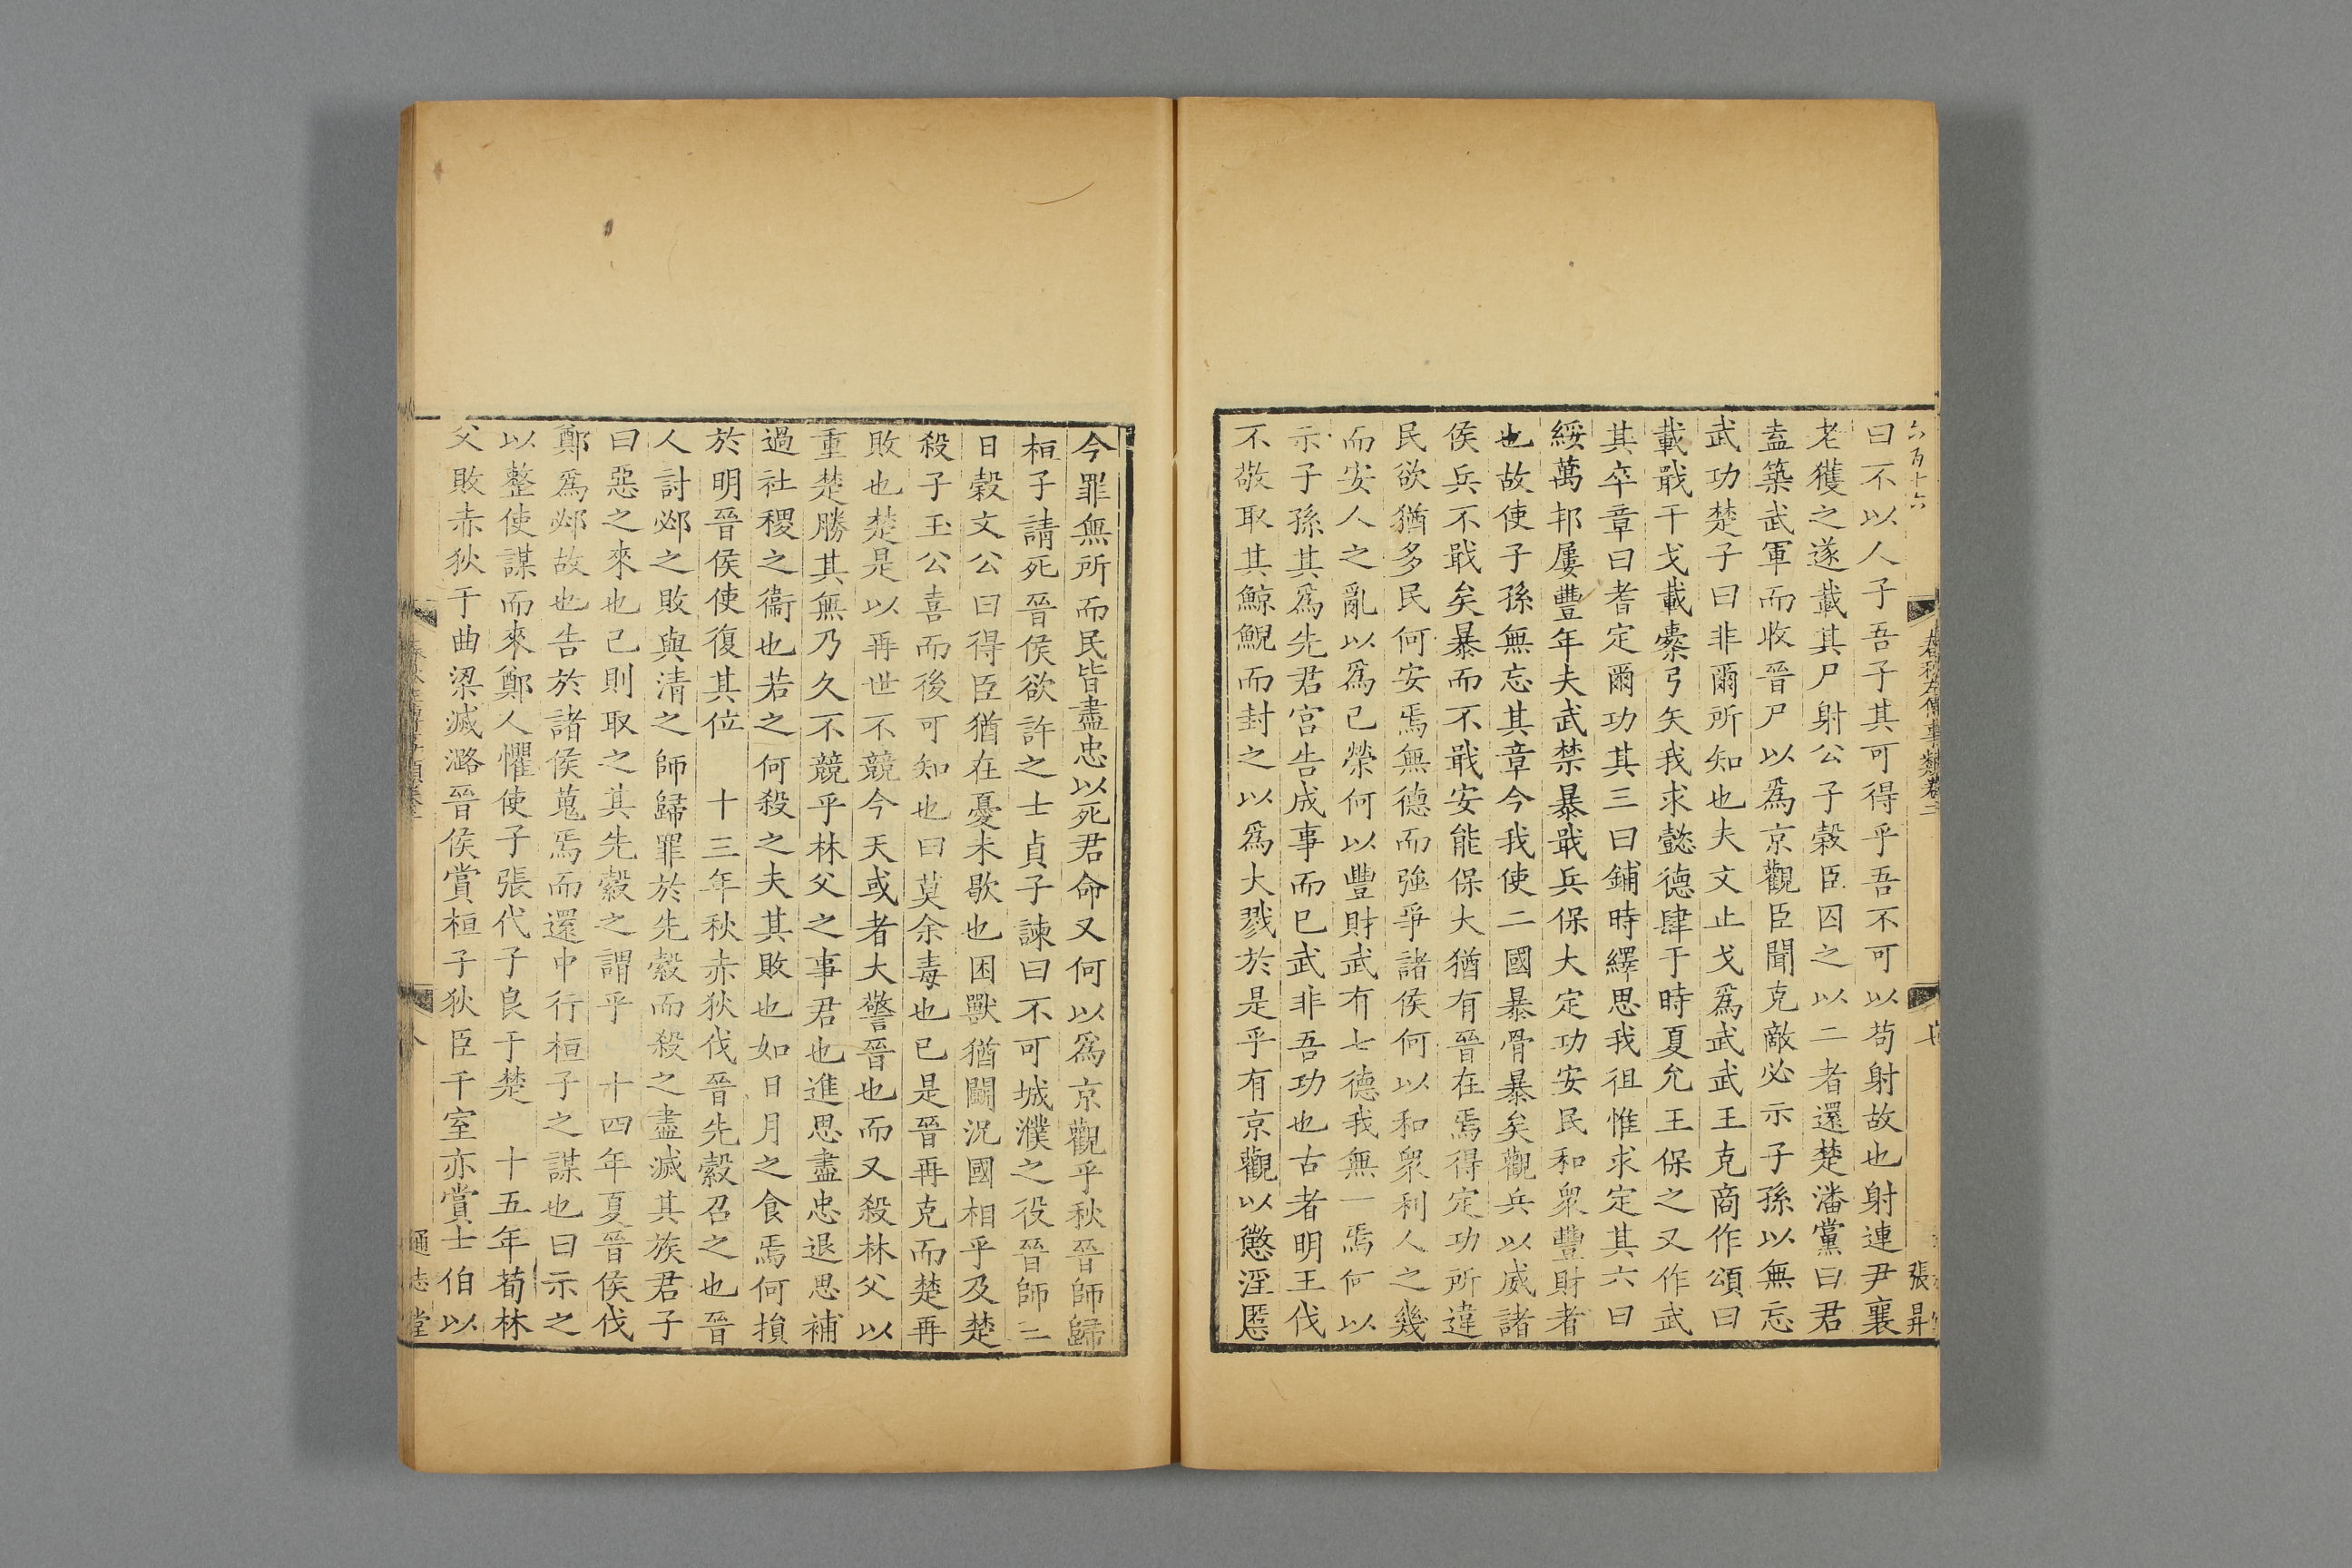 六百十六
春秋左傳事類卷二
張昇
曰不以人子吾子其可得乎吾不可以苟射故也射連尹襄
老獲之遂載其尸射公子穀臣囚之以二者還楚潘黨曰君
盍築武軍而收晉尸以爲京觀臣聞克敵必示子孫以無忘
武功楚子曰非爾所知也夫文止戈爲武武王克商作頌曰
載戢干戈載櫜弓矢我求懿德肆于時夏允王保之又作武
其卒章曰耆定爾功其三曰鋪時繹思我徂惟求定其六曰
綏萬邦屢豐年夫武禁暴戢兵保大定功安民和衆豐財者
也故使子孫無忘其章今我使二國暴骨暴矣觀兵以威諸
侯兵不戢矣暴而不戢安能保大猶有晉在焉得定功所違
民欲猶多民何安焉無德而強爭諸侯何以和衆利人之幾
而安人之亂以爲己榮何以豐財武有七德我無一焉何以
示子孫其爲先君宮告成事而已武非吾功也古者明王伐
不敬取其鯨鯢而封之以爲大戮於是乎有京觀以懲淫慝
今罪無所而民皆盡忠以死君命又何以爲京觀乎秋晉師歸
桓子請死晉侯欲許之士貞子諫曰不可城濮之役晉師三
日穀文公曰得臣猶在憂未歇也困獸猶鬭況國相乎及楚
殺子玉公喜而後可知也曰莫余毒也已是晉再克而楚再
敗也楚是以再世不競今天或者大警晉也而又殺林父以
重楚勝其無乃久不競乎林父之事君也進思盡忠退思補
過社稷之衞也若之何殺之夫其敗也如日月之食焉何損
於明晉侯使復其位　十三年秋赤狄伐晉先縠召之也晉
人討邲之敗與清之師歸罪於先縠而殺之盡滅其族君子
曰惡之來也己則取之其先縠之謂乎　十四年夏晉侯伐
鄭爲邲故也告於諸侯蒐焉而還中行桓子之謀也曰示之
以整使謀而來鄭人懼使子張代子良于楚　十五年荀林
父敗赤狄于曲梁滅潞晉侯賞桓子狄臣千室亦賞士伯以
八
通志堂